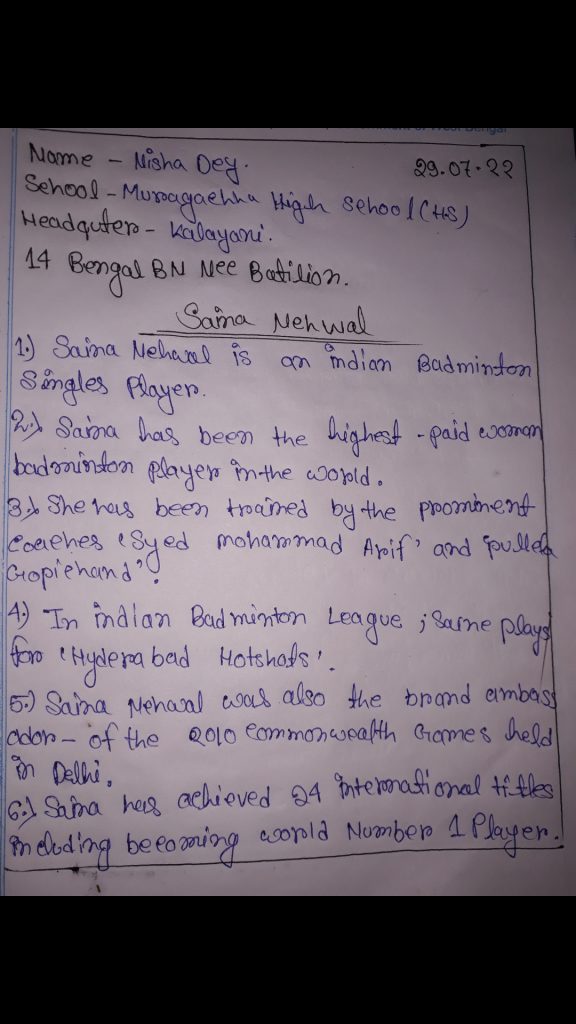 Name - Nisha Dey. 29.07.22
School - Muragachha High School (HS)
Headquter - Kalayani.
14 Bengal BN Ncc Batilion.
Saina Nehwal
1.) Saina Nehwal is an indian Badminton
Singles Player.
2.) Saina has been the highest - paid woman
badminton player in the world.
3.) She has been trained by the prominent
coaches 'Syed mohammad Arif' and 'pullela
Gopichand'.
4.) In indian Badminton League ; Saine plays
for 'Hyderabad Hotshots'.
5.) Saina Nehwal was also the brand ambass
ador - of the 2010 commonwealth Games held
in Delhi.
6.) Saina has achieved 24 international titles
including becoming world Number 1 Player.